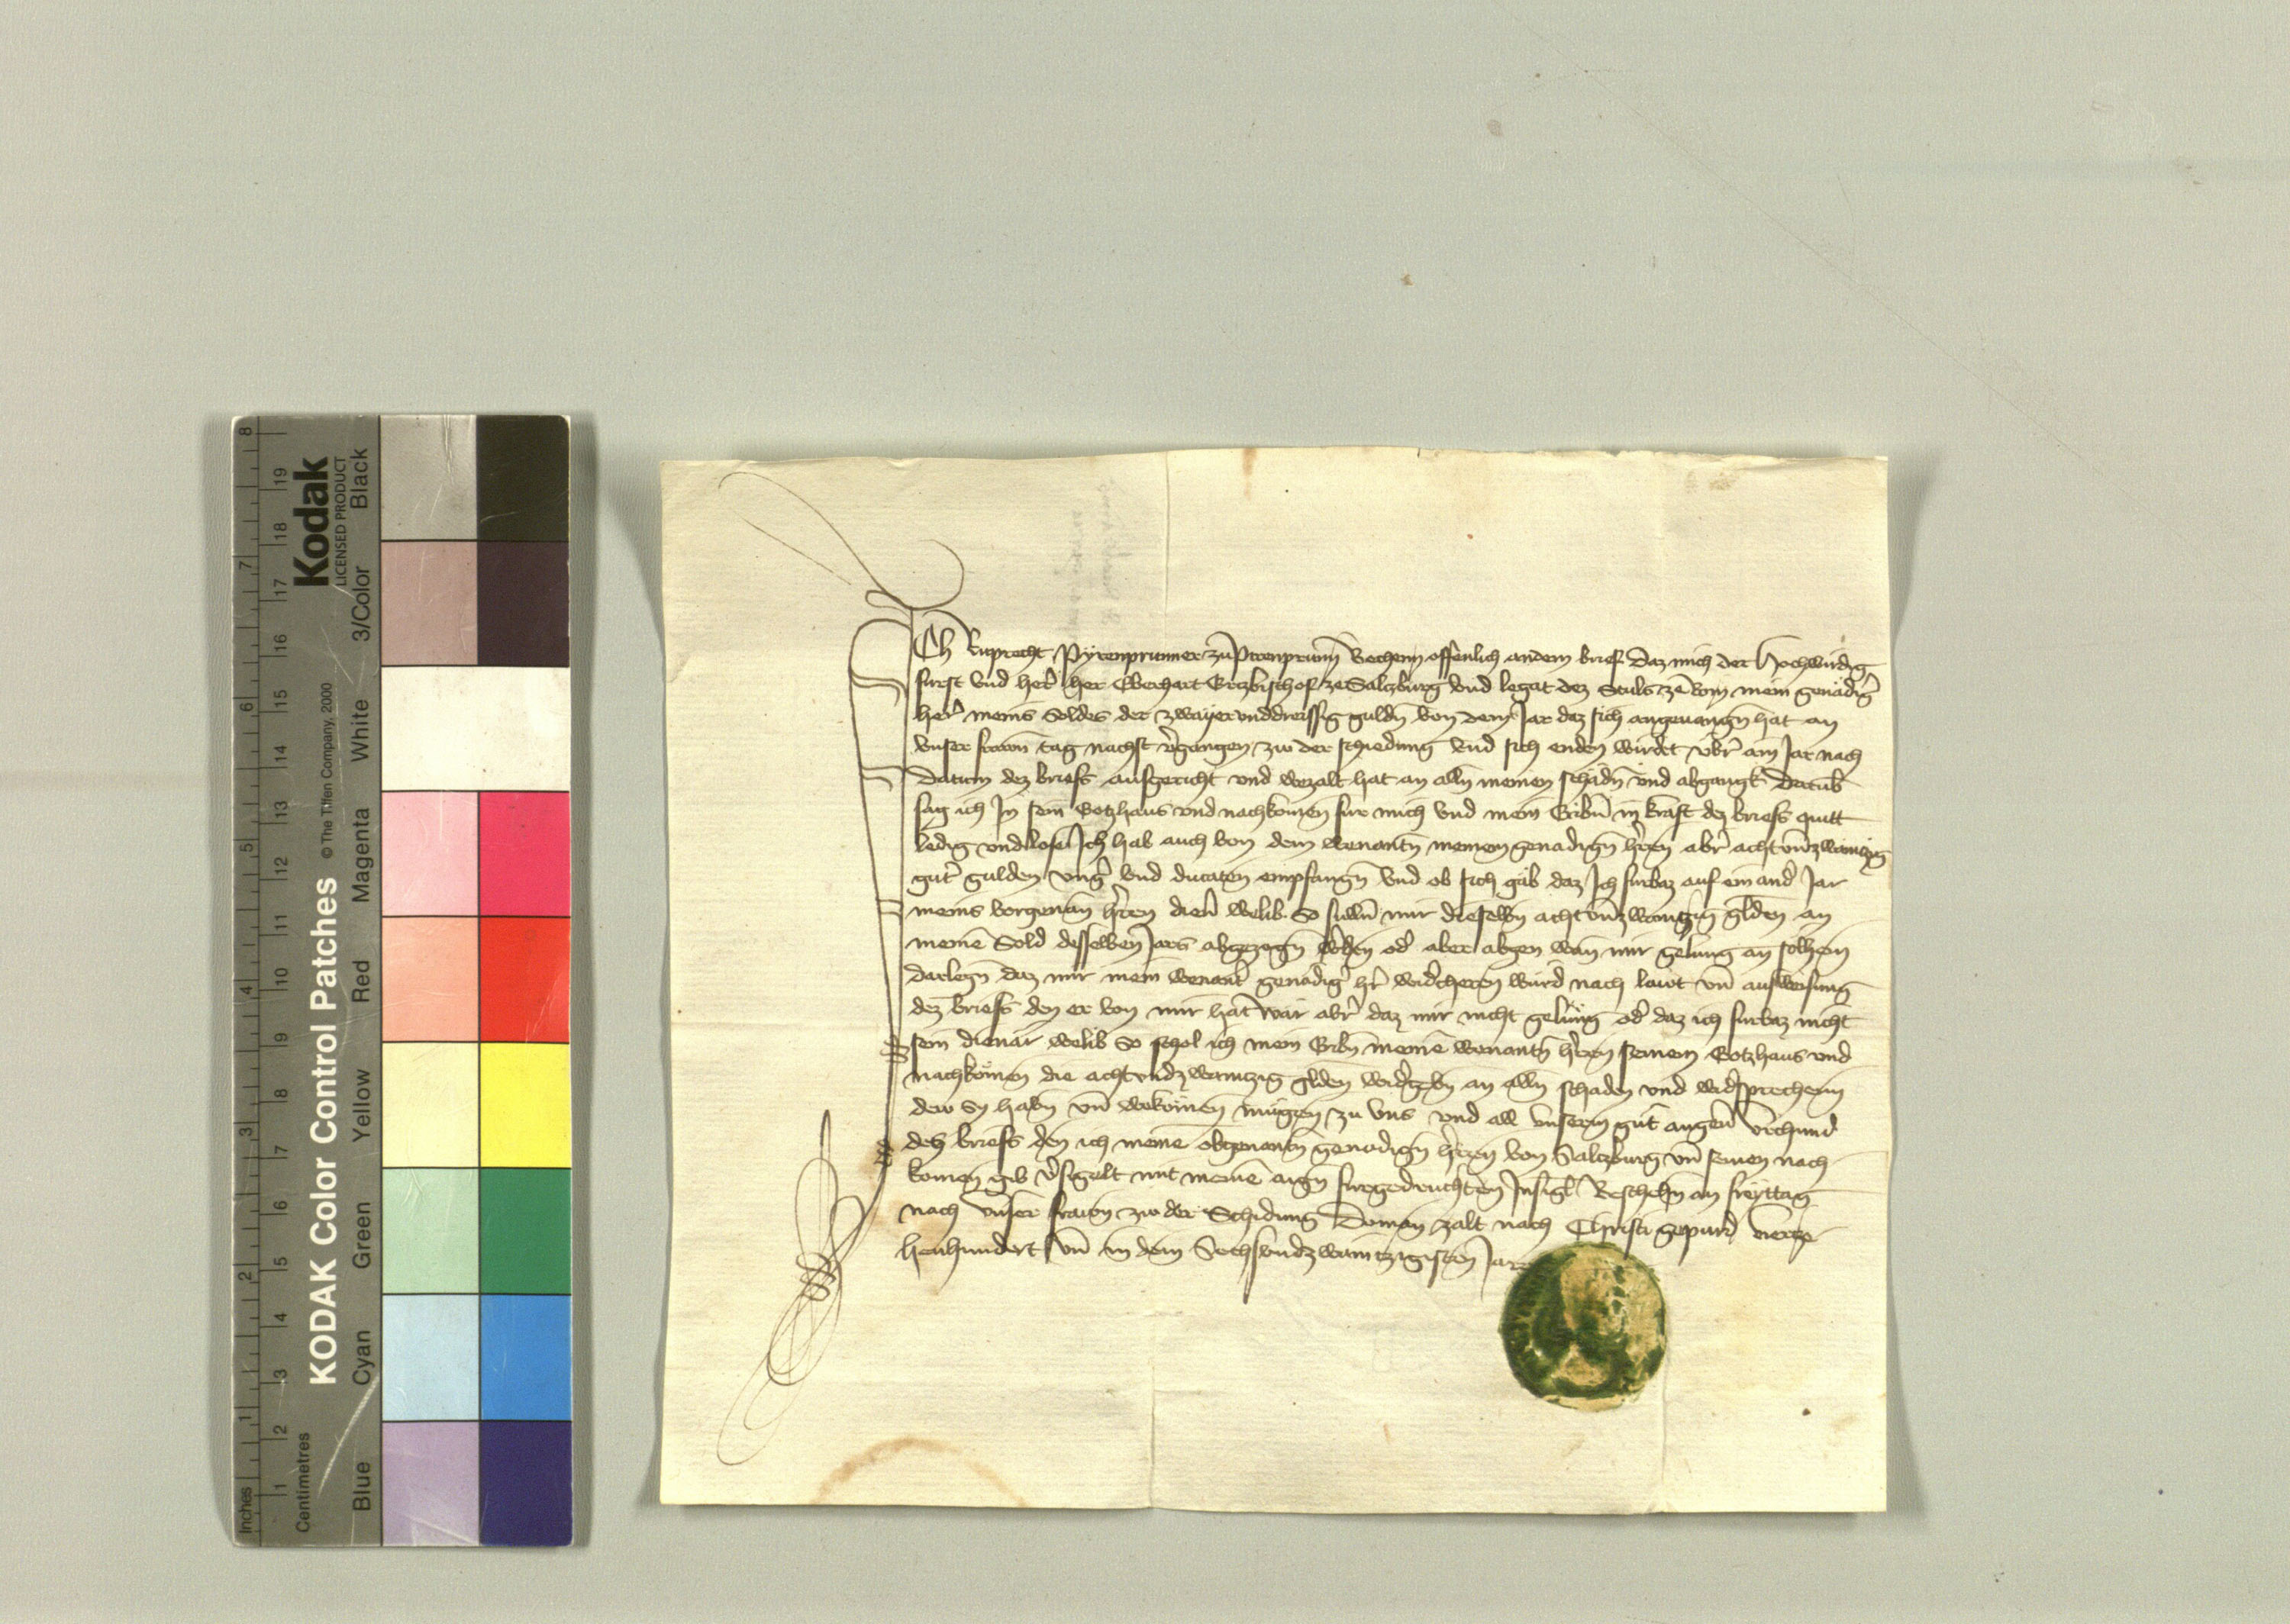 Inches
Centimetres
KODAK Color Control Patches © The Tiffen Company, 2000
Kodak
LICENSED PRODUCT
Blue Cyan Green Yellow Red Magenta White 3/Color Black
Ich Ruprecht Pyrenprunner zu Pirenprunn̄ Bechenn offenlich an dem brief Daz mich der Hochwirdig
furst vnd her her Eberhart Ertzbischof ze Salczburg vnd legat dez Stuls ze Rom mein genädig
her meins Soldes der zwayervnddreissig guldn̄ von dem Jar daz sich angeuangn̄ hat an
vnser frawn̄ tag nachst vergangen zw der schiedung vnd sich enden wirdet vber ain Jar nach
Datum dez briefs ausgericht vnd wezalt hat an alln̄ meinen schädn̄ vnd abgangk Darub
sag ich In sein Gotzhaus vnd nachkomen fur mich vnd mein Eribn̄ in kraft dez briefs quitt
ledig vnd los Ich hab auch von dem wenantn̄ meinem genadign̄ hren aber achtvn̄zwaintzig
guter gulden vnger vnd ducaten empfangn̄ vnd ob sich gäb daz Ich furbaz auf ein and Jar
meins vorgenan̄ hren dien̄ welib So sulln̄ mir dieselbn̄ achtvn̄zwaintzig glden an
meinē Sold desselben Jars abgezogn̄ werden od aber abgen wan mir geling an solhem
darlegn̄ daz mir mein wenant genädig hr widcheren würd nach lawt vn̄ ausweisung
dez briefs den er von mir hat Wär abr daz mir nicht geling od daz ich furbaz nicht
sein dienär welib So schol ich mein Eribn̄ meinē wenantn̄ hren seinem Gotzhaus vnd
nachkomen die achtvndzwaintzig glden widgebn̄ an alln̄ schaden vnd widsprechenn
dew sy habn̄ vn̄ wekomen mugen zu vns vnd all vnserm gut angeuer Vrchund
dez briefs den ich meinē obgenantn̄ genadign̄ hren von Salczburg vn̄ seinen nach
komen gib vsigelt mit meinē aign̄ furgedruchten Insigl Beschehn̄ an freyttag
nach vnser frawn zw der Schidung Do man zalt nach Christi gepurd vierze
henhundert vn̄ in dem Sechsvndzwaintzigisten Jare